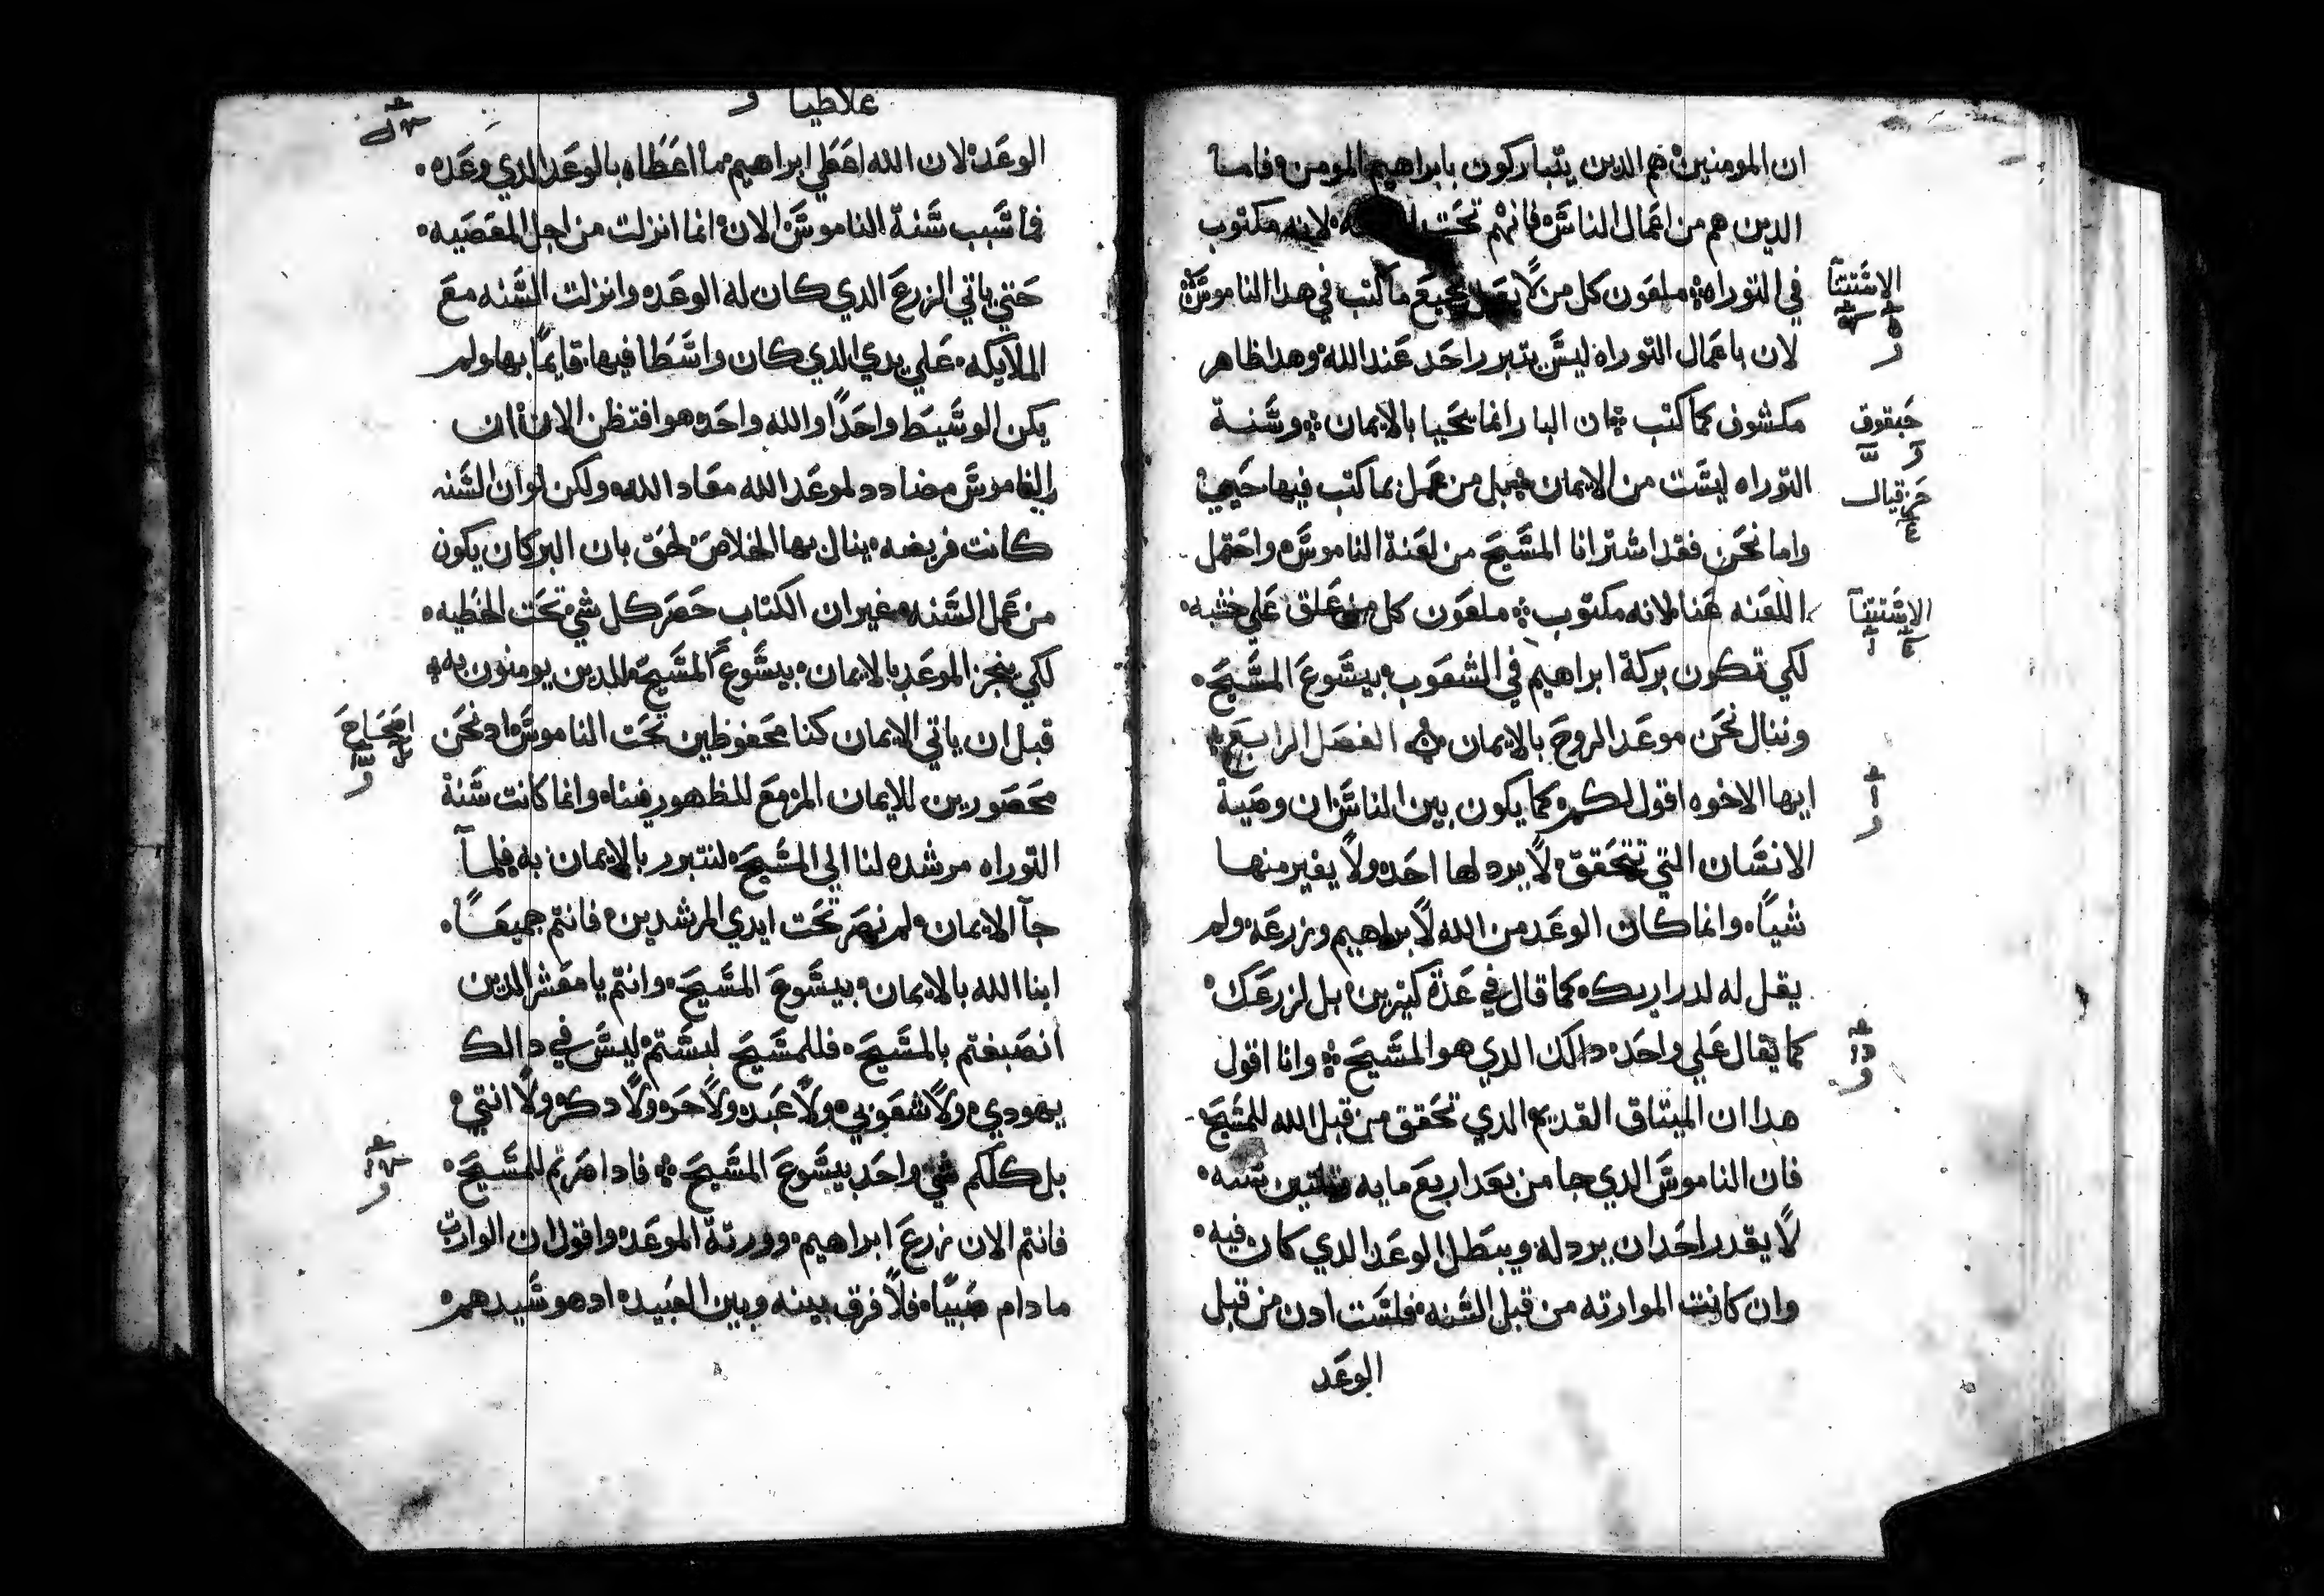 ان المومنين هم الدين يتباركون بابراهيم المومن فاما
الدين هم من اعمال الناس فانهم تحت لانه مكتوب
في التوراه ملعون كل من لا يعمل بجميع ما كتب في هدا الناموس
الاستتنا
لان باعمال التوراه ليس يتبرر احد عند الله وهدا ظاهر
مكشوف كما كتب ان البار انما يحيا بالايمان وسنة
حبقوق
التوراه ليست من الايمان بل من عمل بما كتب فيها حيي
حزقيال
واما نحن فقد اشترانا المسيح من لعنة الناموس واحتمل
اللعنه عنا لانه مكتوب ملعون كل من علق علي خشبه
الاستتنا
لكي تكون بركة ابراهيم في الشعوب بيسوع المسيح
وننال نحن موعد الروح بالايمان الفصل الرابع
ايها الاخوه اقول لكم كما يكون بين الناس ان وصية
الانسان التي تتحقق لا يردلها احد ولا يغير منها
شيا وانما كان الوعد من الله لابراهيم وزرعه ولم
يقل له لدراريك كما قال في عدة كتيرين بل لزرعك
كما يقال علي واحد دالك الدي هو المسيح وانا اقول
هدا ان الميتاق القديم الدي تحقق من قبل الله للمسيح
فان الناموس الدي جا من بعد اربع مايه وتلتين سنه
لا يقدر احد ان يردله ويبطل الوعد الدي كان فيه
وان كانت الموارته من قبل السنه فلست ادن من قبل
الوعد
غلاطيا و
الوعد لان الله اعطي ابراهيم مما اعطاه بالوعد الدي وعده
فما سبب سنة الناموس الان انما انزلت من اجل المعصيه
حتي ياتي الزرع الدي كان له الوعد وانزلت السنه مع
الملايكه علي يدي الدي كان واسطا فيها قايما بها ولم
يكن الوسيط واحدا والله واحد هو افتظن الان ان
الناموس مضادد لموعد الله معاد الله ولكن لو ان السنه
كانت فريضه ينال بها الخلاص لحق بان البر كان يكون
من عمل السنه غير ان الكتاب حصر كل شي تحت الخطيه
لكي ينجز الموعد بالايمان بيسوع المسيح للدين يومنون به
قبل ان ياتي الايمان كنا محفوظين تحت الناموس اد نحن
اصحاح
محصورين للايمان المزمع للظهور فينا وانما كانت سنة
التوراه مرشده لنا الي المسيح لنتبرر بالايمان به فلما
جآ الايمان لم نصر تحت ايدي المرشدين فانتم جميعا
ابنا الله بالايمان بيسوع المسيح وانتم يا معشر الدين
انصبغتم بالمسيح فللمسيح لبستم ليس في دالك
يهودي ولا شعوبي ولا عبد ولا حر ولا دكر ولا انتي
بل كلكم شي واحد بيسوع المسيح فادا صرتم للمسيح
فانتم الان زرع ابراهيم وورتة الموعد واقول ان الوارت
ما دام صبيا فلا فرق بينه وبين العبيد اد هو سيدهم